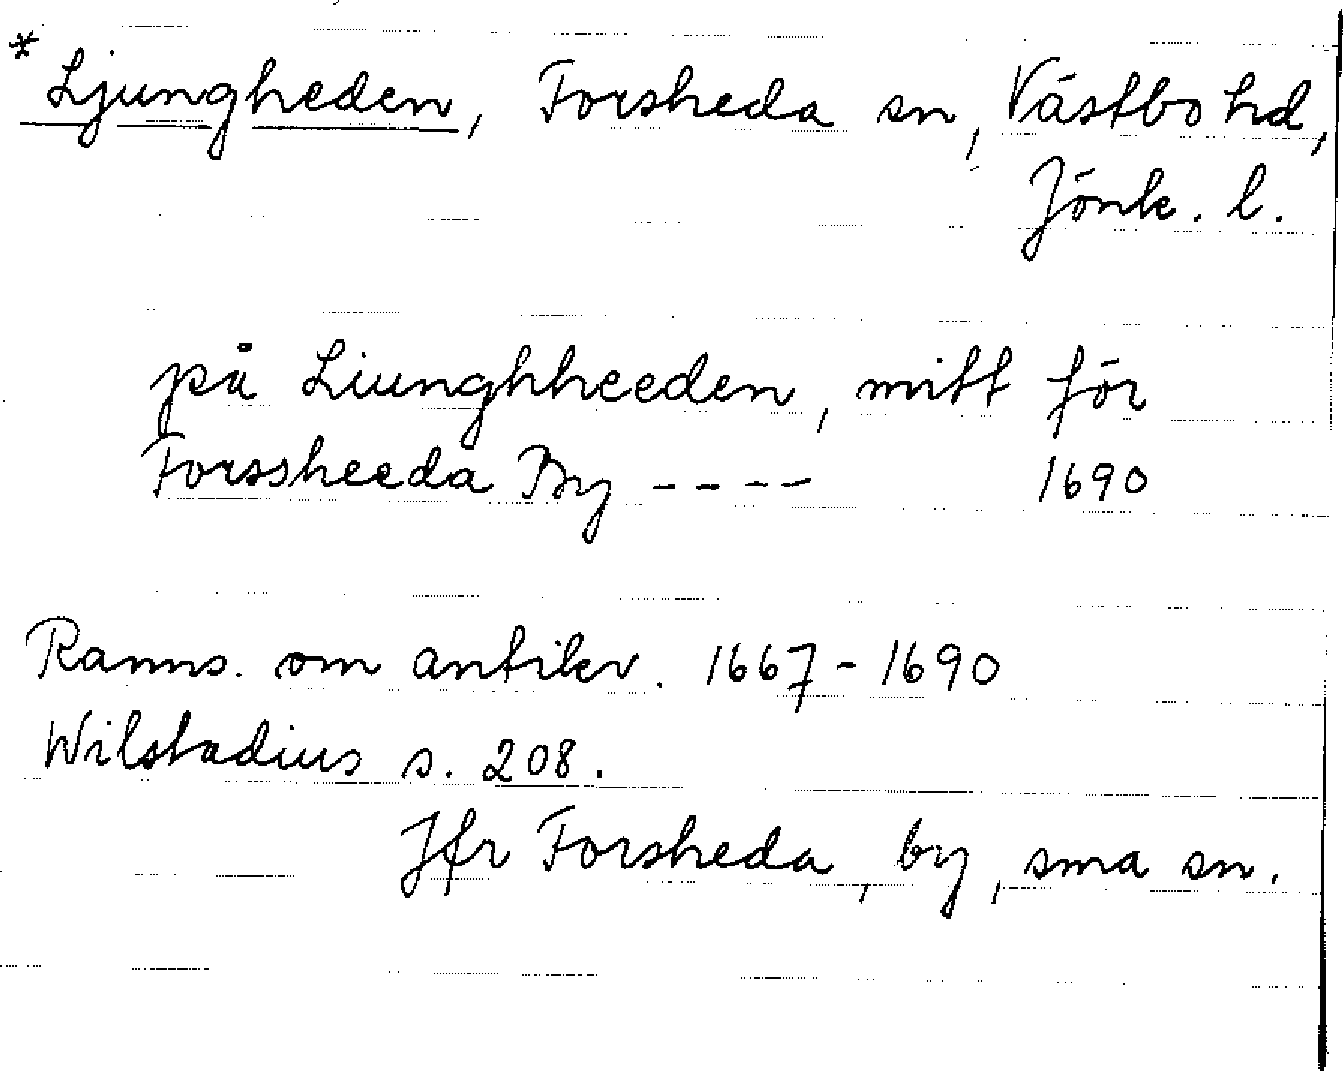 * Ljungheden, Forsheda sn, Västbo hd,
Jönk. l.
på Liunghheeden, mitt för
Forssheeda By ---- 1690
Ranns. om antikv. 1667-1690
Wilstadius s. 208.
Jfr Forsheda, by, sma sn.